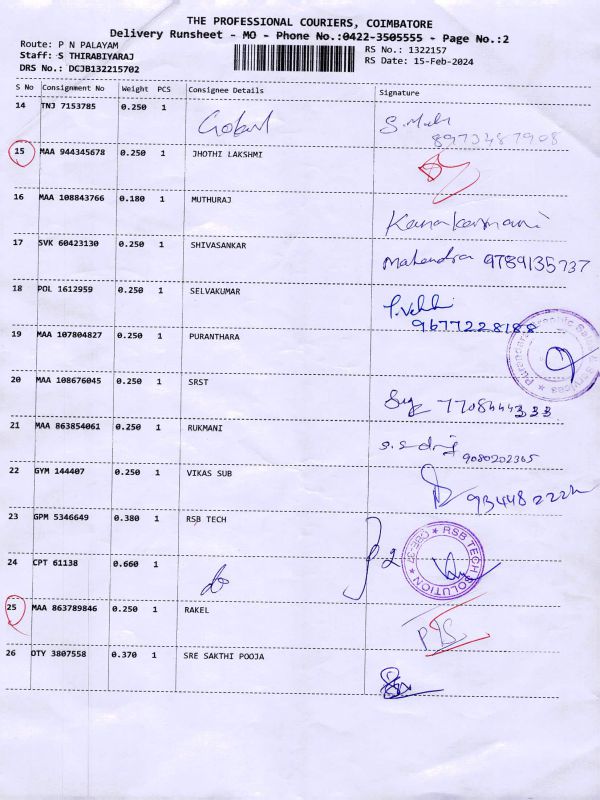 THE PROFESSIONAL COURIERS, COIMBATORE
Delivery Runsheet - MO - Phone No.:0422-3505555 - Page No.:2
Route: P N PALAYAM
Staff: S THIRABIYARAJ
DRS No.: DCJB132215702
RS No.: 1322157
RS Date: 15-Feb-2024
S No Consignment No Weight PCS Consignee Details Signature
14 TNJ 7153785 0.250 1
15 MAA 944345678 0.250 1 JHOTHI LAKSHMI
16 MAA 108843766 0.180 1 MUTHURAJ Kanakarmani
17 SVK 60423130 0.250 1 SHIVASANKAR Mahendra 9789135737
18 POL 1612959 0.250 1 SELVAKUMAR
9677228188
19 MAA 107804827 0.250 1 PURANTHARA
20 MAA 108676045 0.250 1 SRST 7708444333
21 MAA 863854061 0.250 1 RUKMANI
9080202365
22 GYM 144407 0.250 1 VIKAS SUB
23 GPM 5346649 0.380 1 RSB TECH
RSB TECH SOLUTION * CBE-37 *
24 CPT 61138 0.660 1 do
25 MAA 863789846 0.250 1 RAKEL
26 OTY 3807558 0.370 1 SRE SAKTHI POOJA